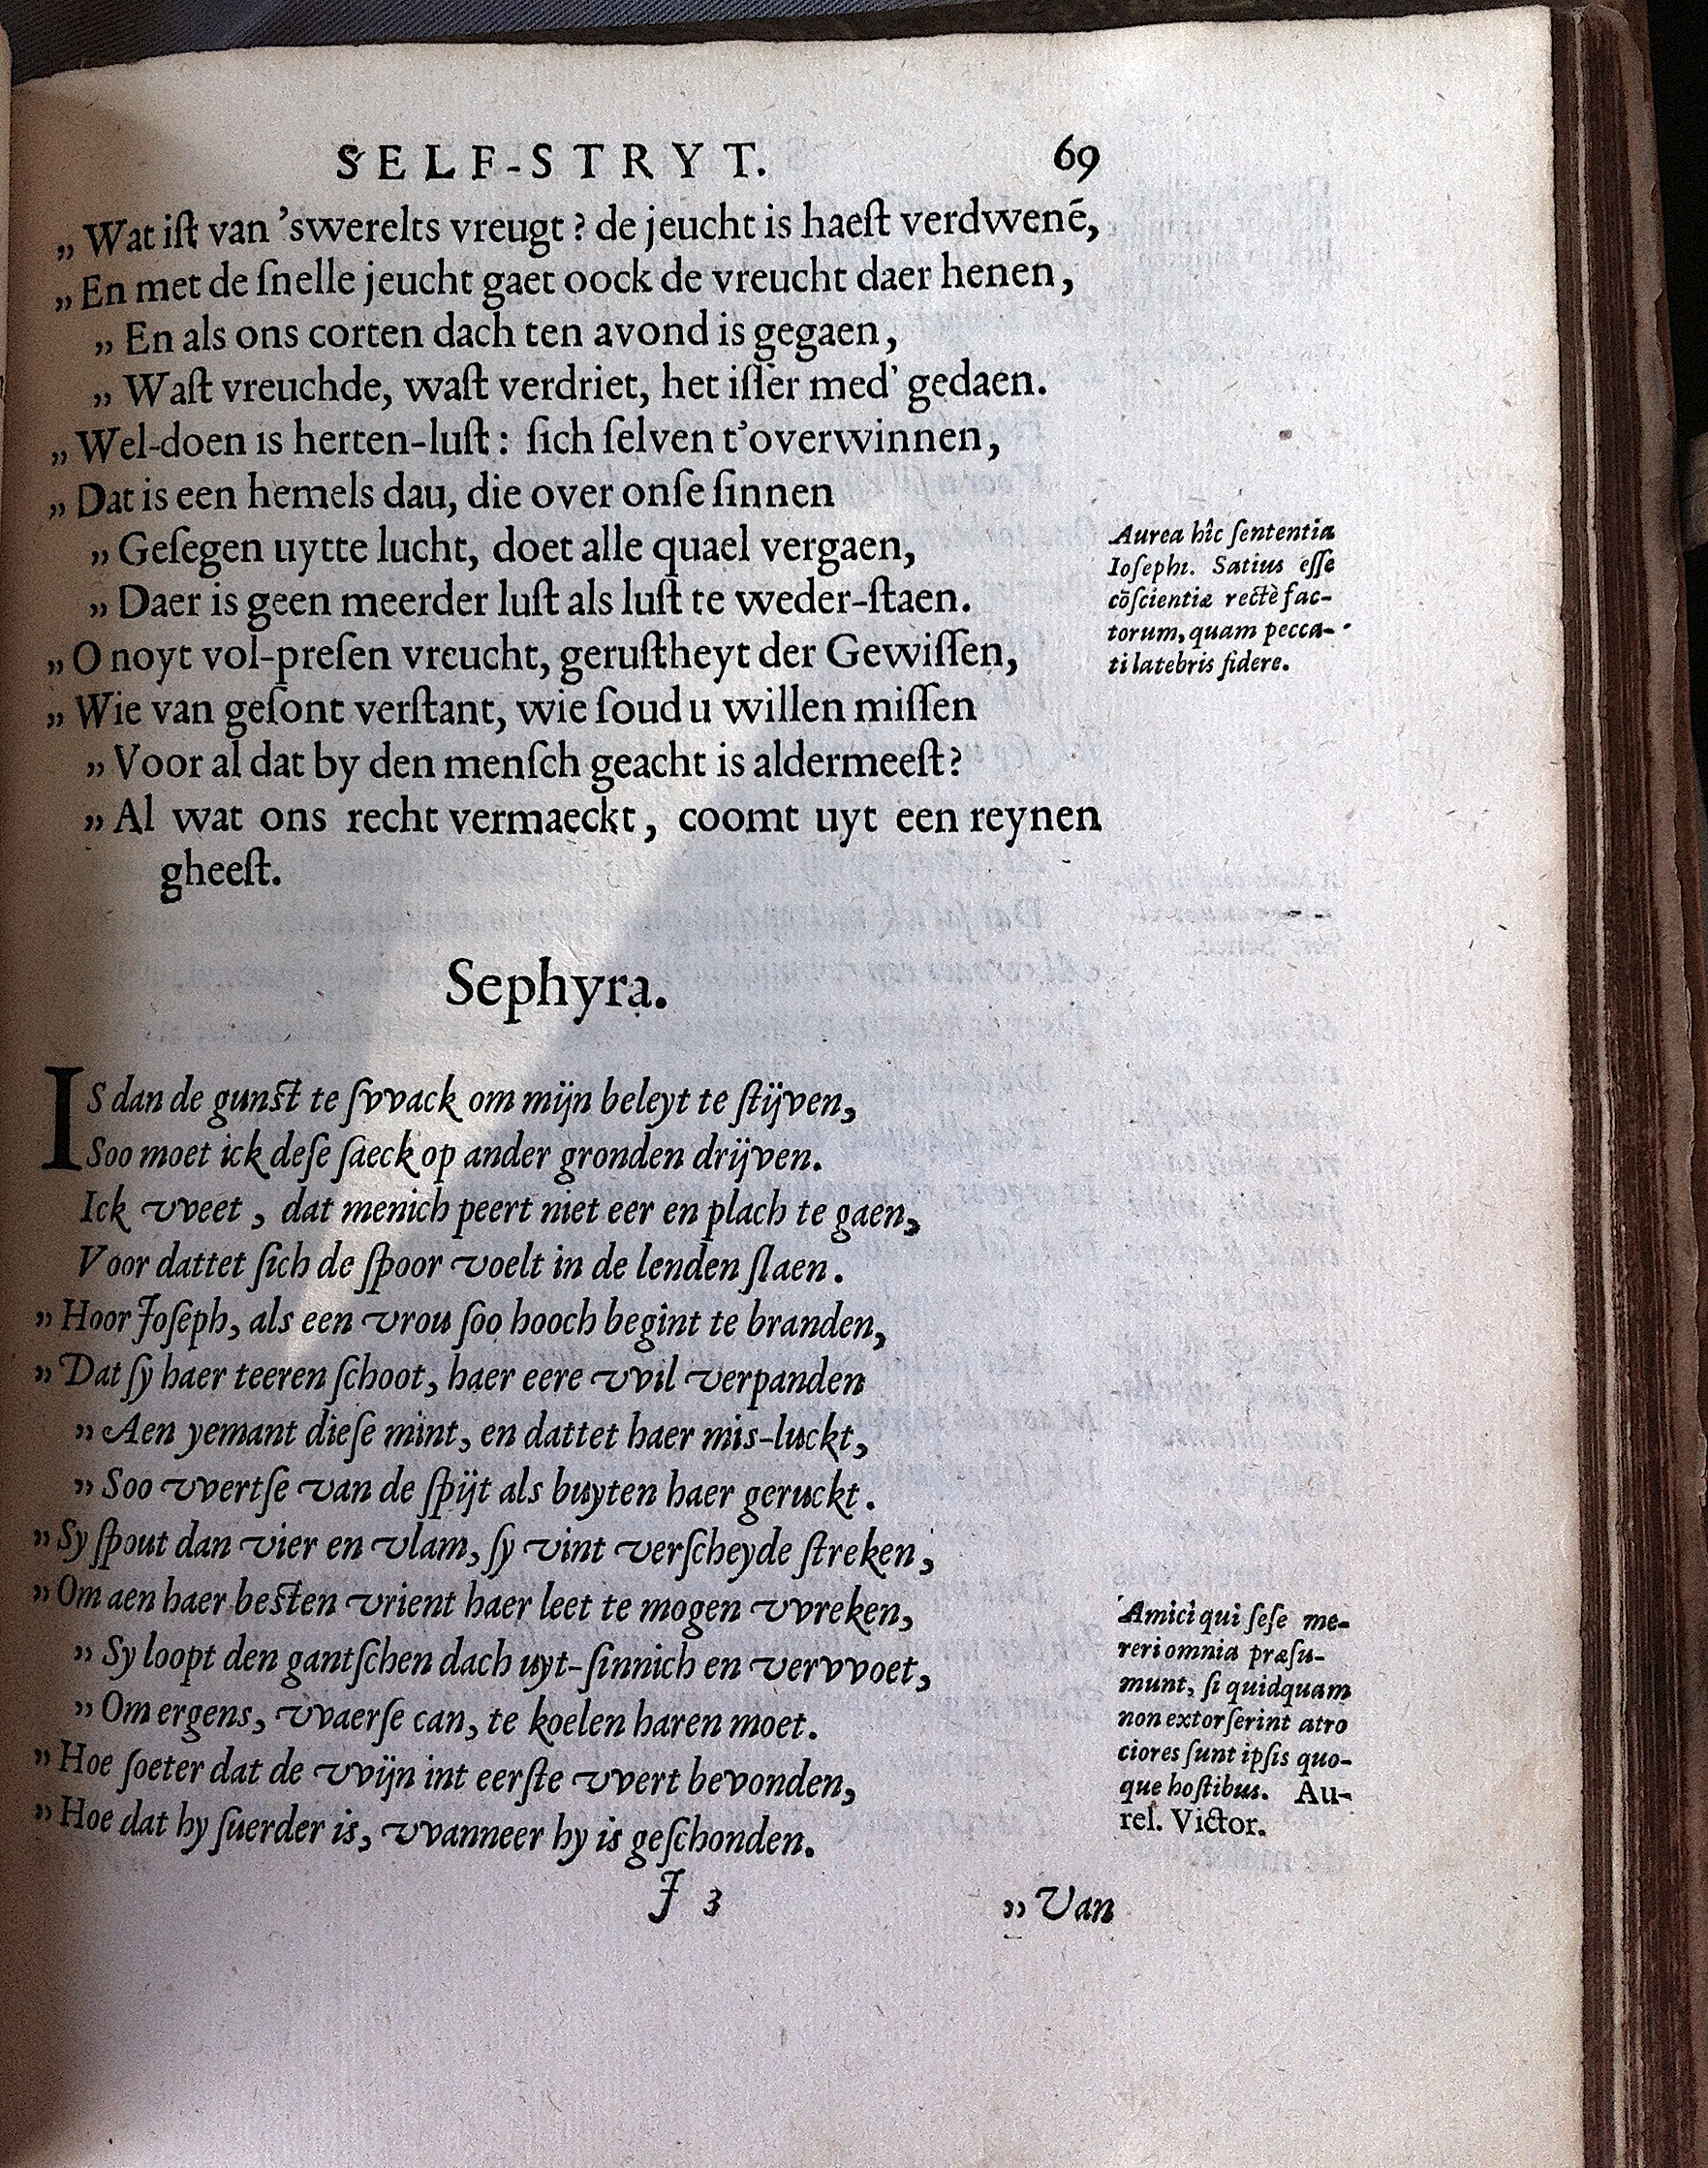 SELF-STRYT. 69
„ Wat iſt van 'swerelts vreugt ? de jeucht is haeſt verdwenē,
„ En met de ſnelle jeucht gaet oock de vreucht daer henen,
„ En als ons corten dach ten avond is gegaen,
„ Waſt vreuchde, waſt verdriet, het iſſer med' gedaen.
„ Wel-doen is herten-luſt : ſich ſelven t'overwinnen,
„ Dat is een hemels dau, die over onſe ſinnen
„ Geſegen uytte lucht, doet alle quael vergaen,
„ Daer is geen meerder luſt als luſt te weder-ſtaen.
„ O noyt vol-preſen vreucht, geruſtheyt der Gewiſſen,
„ Wie van geſont verſtant, wie ſoud u willen miſſen
„ Voor al dat by den menſch geacht is aldermeeſt?
„ Al wat ons recht vermaeckt, coomt uyt een reynen
gheeſt.
Aurea hîc ſententia
Ioſephi. Satius eſſe
cōſcientiæ rectè fac-
torum, quam pecca-
ti latebris fidere.
Sephyra.
IS dan de gunſt te ſvvack om mijn beleyt te ſtijven,
Soo moet ick deſe ſaeck op ander gronden drijven.
Ick vveet, dat menich peert niet eer en plach te gaen,
Voor dattet ſich de ſpoor voelt in de lenden ſlaen.
„ Hoor Joſeph, als een vrou ſoo hooch begint te branden,
„ Dat ſy haer teeren ſchoot, haer eere vvil verpanden
„ Aen yemant dieſe mint, en dattet haer mis-luckt,
„ Soo vvertſe van de ſpijt als buyten haer geruckt.
„ Sy ſpout dan vier en vlam, ſy vint verſcheyde ſtreken,
„ Om aen haer beſten vrient haer leet te mogen vvreken,
„ Sy loopt den gantſchen dach uyt-ſinnich en vervvoet,
„ Om ergens, vvaerſe can, te koelen haren moet.
„ Hoe ſoeter dat de vvijn int eerſte vvert bevonden,
„ Hoe dat hy ſuerder is, vvanneer hy is geſchonden.
Amici qui ſeſe me-
reri omnia præſu-
munt, ſi quidquam
non extorſerint atro
ciores ſunt ipſis quo-
que hoſtibus. Au-
rel. Victor.
J 3 „ Van